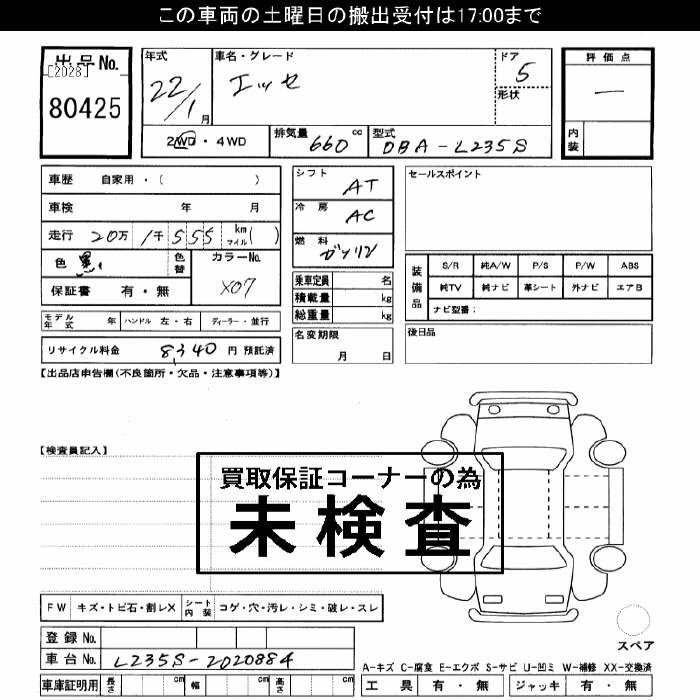 この車両の土曜日の搬出受付は17:00まで
出品No.
[2028]
80425
年式
22/1月
車名・グレード
エッセ
ドア
5
形状
2WD・4WD
排気量 660 cc
型式 DBA-L235S
評価点
―
内装
車歴 自家用・( )
車検 年 月
走行 20万 1千 555 km マイル( )
色 黒
色替
カラーNo.
X07
保証書 有・無
モデル年式 年 ハンドル 左・右 ディーラー・並行
リサイクル料金 8,340 円 預託済
シフト AT
冷房 AC
燃料 ガソリン
乗車定員 名
積載量 kg
総重量 kg
名変期限
月 日
セールスポイント
装備品
S/R 純A/W P/S P/W ABS
純TV 純ナビ 革シート 外ナビ エアB
ナビ型番:
後日品
【出品店申告欄(不良箇所・欠品・注意事項等)】
【検査員記入】
買取保証コーナーの為
未検査
FW キズ・トビ石・割レX シート内装 コゲ・穴・汚レ・シミ・破レ・スレ
スペア
登録No.
車台No. L235S-2020884
A-キズ C-腐食 E-エクボ S-サビ U-凹ミ W-補修 XX-交換済
車庫証明用 長さ cm 幅 cm 高さ cm
工具 有・無 ジャッキ 有・無